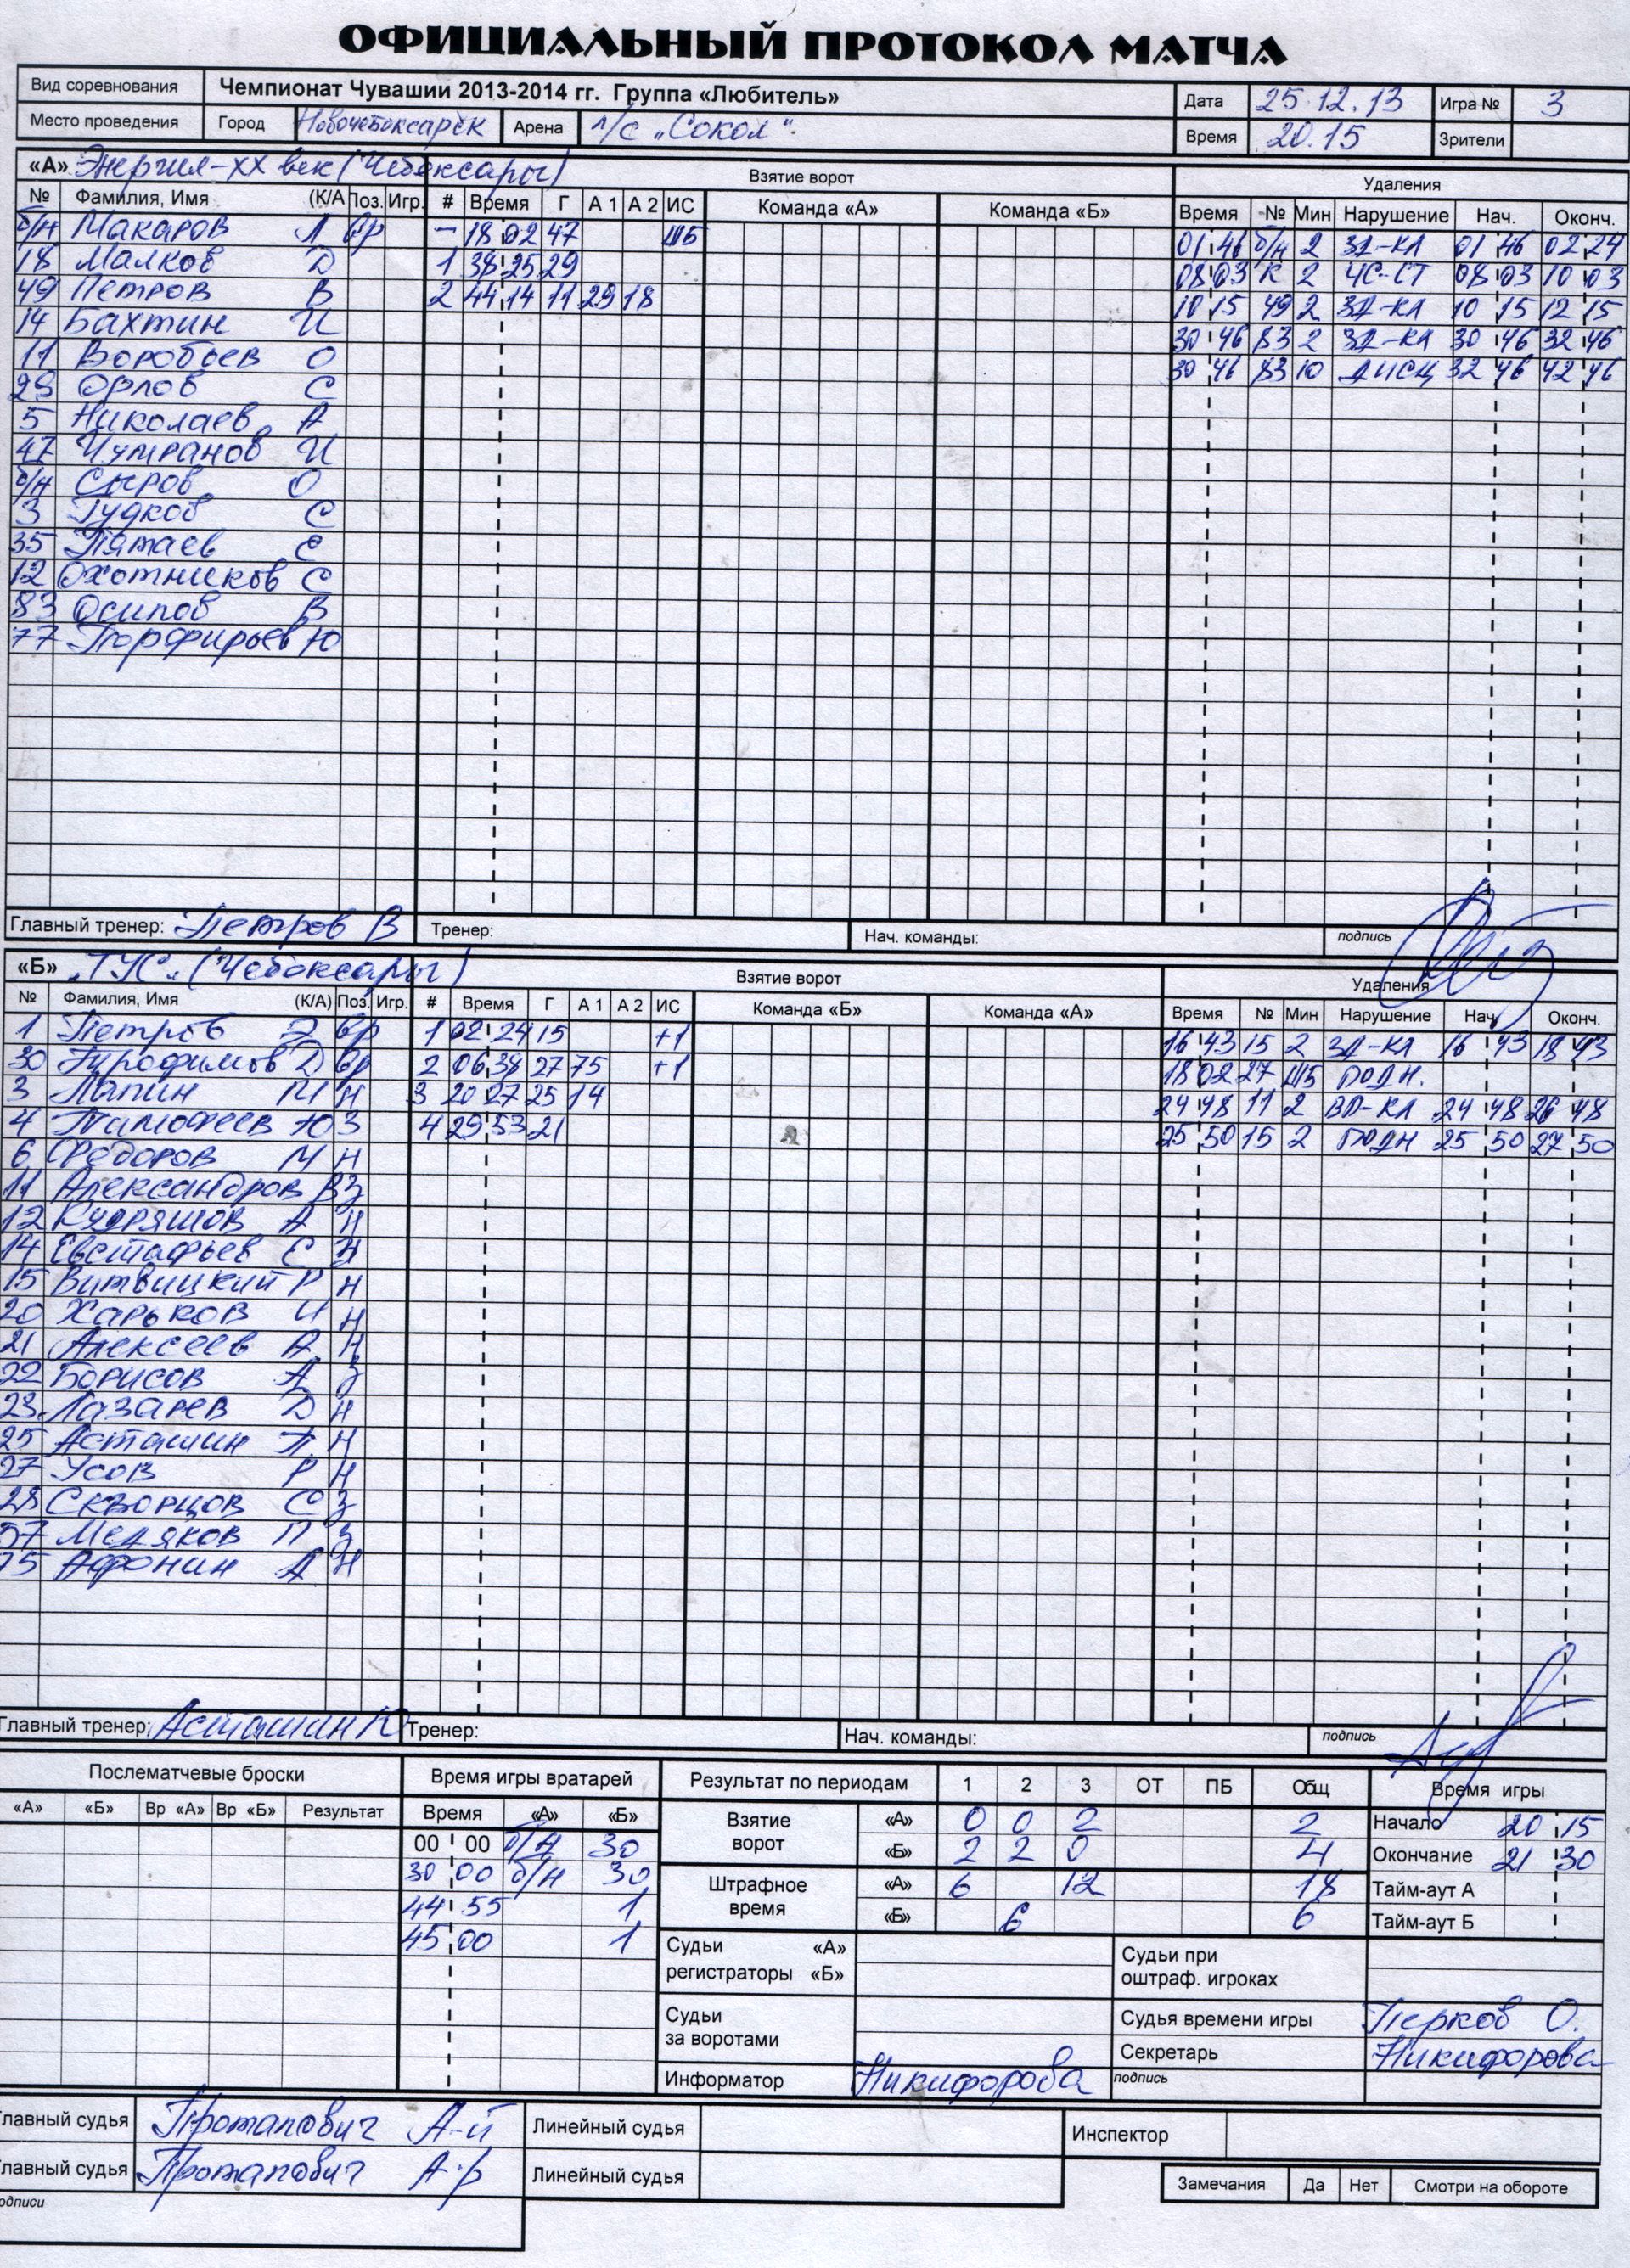 ОФИЦИАЛЬНЫЙ ПРОТОКОЛ МАТЧА
Вид соревнования Чемпионат Чувашии 2013-2014 гг. Группа «Любитель» Дата 25.12.13 Игра № 3
Место проведения Город Новочебоксарск Арена л/с „Сокол“. Время 20.15 Зрители
«А» Энергия-XX век (Чебоксары) Взятие ворот Удаления
№ Фамилия, Имя (К/А Поз. Игр. # Время Г А 1 А 2 ИС Команда «А» Команда «Б» Время № Мин Нарушение Нач. Оконч.
б/н Макаров Л Вр – 18 02 47 Ш5 01 46 б/н 2 ЗД-КЛ 01 46 02 24
18 Малков Д 1 38 25 29 08 03 К 2 ЧС-СТ 08 03 10 03
49 Петров В 2 44 14 11 29 18 10 15 49 2 ЗД-КЛ 10 15 12 15
14 Бахтин И 30 46 83 2 ЗД-КЛ 30 46 32 46
11 Воробьев О 30 46 83 10 ДИСЦ 32 46 42 46
29 Орлов С
5 Николаев А
47 Чутранов И
б/н Сыров О
3 Гудков С
35 Пятаев Е
12 Охотников С
83 Осипов В
77 Порфирьев Ю
Главный тренер: Петров В Тренер: Нач. команды: подпись
«Б» „ТУС“ (Чебоксары) Взятие ворот Удаления
№ Фамилия, Имя (К/А) Поз. Игр. # Время Г А 1 А 2 ИС Команда «Б» Команда «А» Время № Мин Нарушение Нач. Оконч.
1 Петров Э Вр 1 02 24 15 +1 16 43 15 2 ЗД-КЛ 16 43 18 43
30 Д Вр 2 06 38 27 75 +1 18 02 27 Ш5 ПОДН.
3 Лапин М Н 3 20 27 25 14 24 48 11 2 ВП-КЛ 24 48 26 48
4 Тимофеев Ю З 4 29 53 21 25 50 15 2 ПОДН 25 50 27 50
6 Федоров М Н
11 Александров В З
12 Кудряшов А Н
14 Евстафьев Е Н
15 Витвицкий Р Н
20 Харьков И Н
21 Алексеев А. Н
22 Борисов А З
23 Лазарев Д Н
25 Асташин П Н
27 Усов Р Н
28 Скворцов С З
57 Медяков П З
75 Афонин А Н
Главный тренер: Асташин Ю Тренер: Нач. команды: подпись
Послематчевые броски Время игры вратарей Результат по периодам 1 2 3 ОТ ПБ Общ Время игры
«А» «Б» Вр «А» Вр «Б» Результат Время «А» «Б» Взятие ворот «А» 0 0 2 2 Начало 20 15
00 00 б/н 30 «Б» 2 2 0 4 Окончание 21 30
30 00 б/н 30 Штрафное время «А» 6 12 18 Тайм-аут А
44 55 1 «Б» 6 6 Тайм-аут Б
45 00 1 Судьи регистраторы «А» «Б» Судьи при оштраф. игроках
Судьи за воротами Судья времени игры Перков О.
Секретарь Никифорова
Информатор Никифорова подпись
Главный судья Протапович А-й Линейный судья Инспектор
Главный судья Протапович А-р Линейный судья Замечания Да Нет Смотри на обороте
одписи